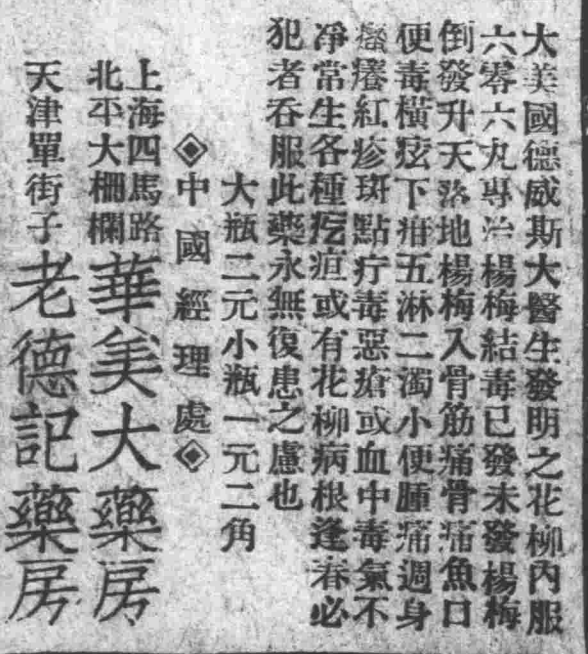 大美國德威斯大醫生發明之花柳內服
六零六丸專治楊梅結毒已發未發楊梅
倒發升天落地楊梅入骨筋痛骨痛魚口
便毒橫痃下疳五淋二濁小便腫痛週身
癢紅疹斑點疔毒惡瘡或血中毒氣不
凈常生各種疙疸或有花柳病根逢春必
犯者吞服此藥永無復患之慮也
大瓶二元小瓶一元二角
◈中國經理處◈
上海四馬路
北平大柵欄
華美大藥房
天津單街子
老德記藥房